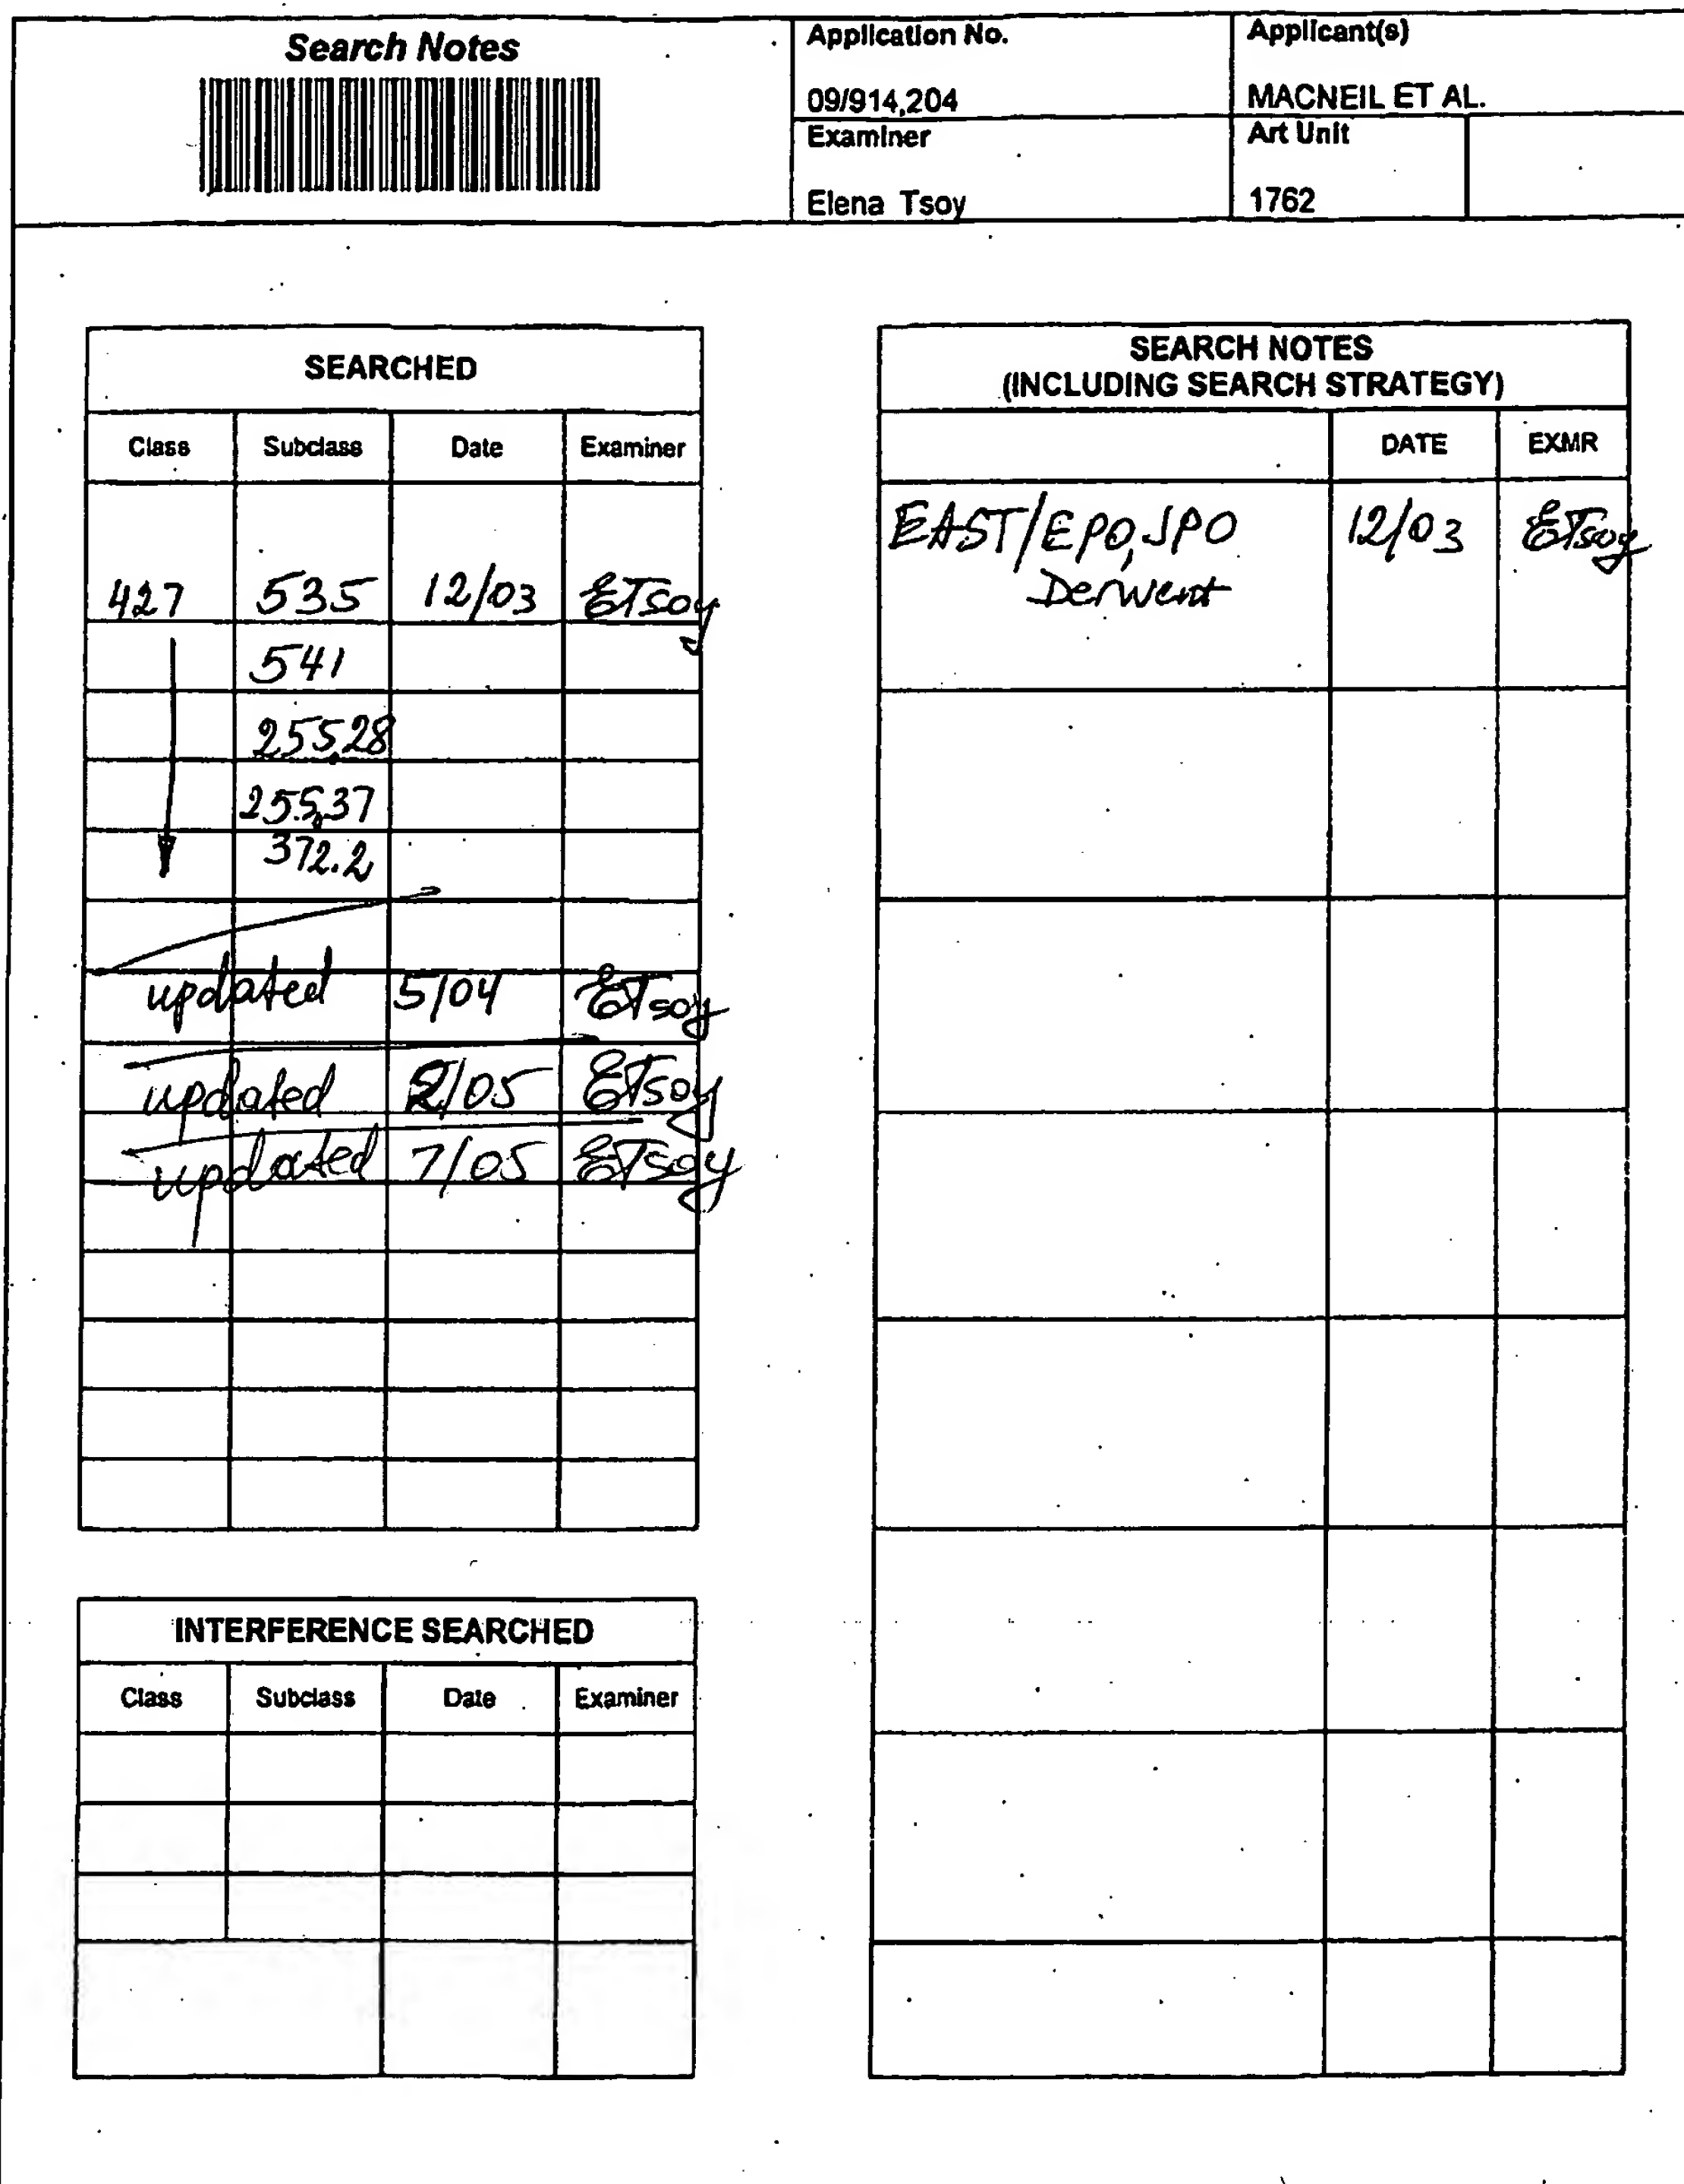 Search Notes
Application No.
09/914,204
Applicant(s)
MACNEIL ET AL.
Examiner
Elena Tsoy
Art Unit
1762
SEARCHED
Class Subclass Date Examiner
427 535 12/03 ETsoy
541
255.28
255.37
372.2
updated 5/04 ETsoy
updated 2/05 ETsoy
updated 7/05 ETsoy
INTERFERENCE SEARCHED
Class Subclass Date Examiner
SEARCH NOTES
(INCLUDING SEARCH STRATEGY)
DATE EXMR
EAST/EPO, JPO 12/03 ETsoy
Derwent